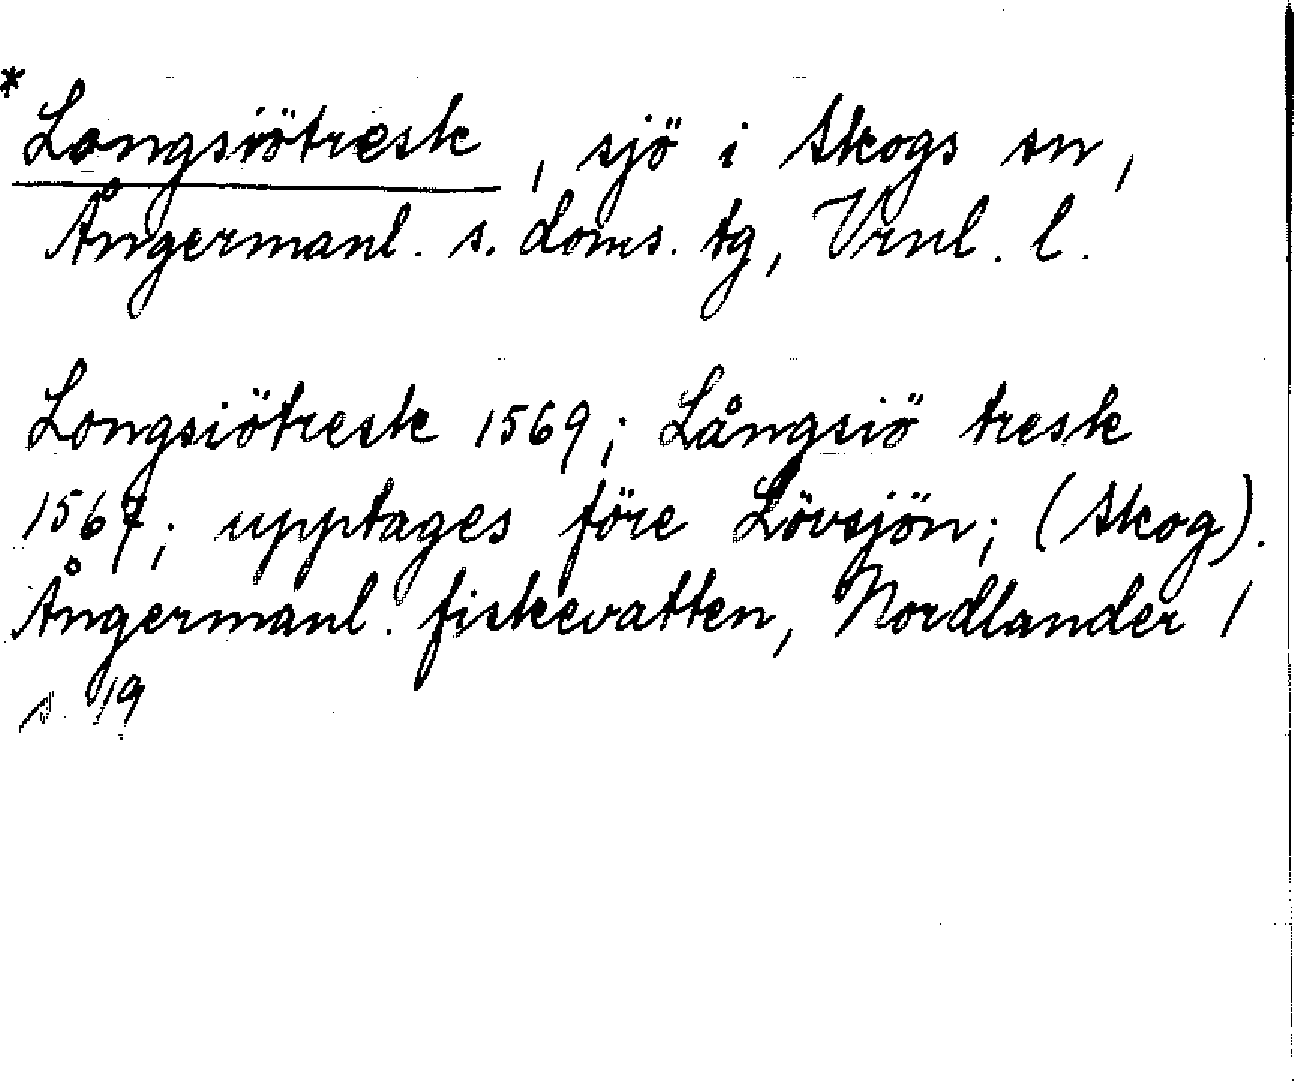 * Longsiötresk, sjö i Skogs sn,
Ångermanl. s. doms. tg, Vrnl. l.
Longsiötresk 1569; Långsiö tresk
1567; upptages före Lövsjön; (Skog).
Ångermanl. fiskevatten, Nordlander 1
s. 19